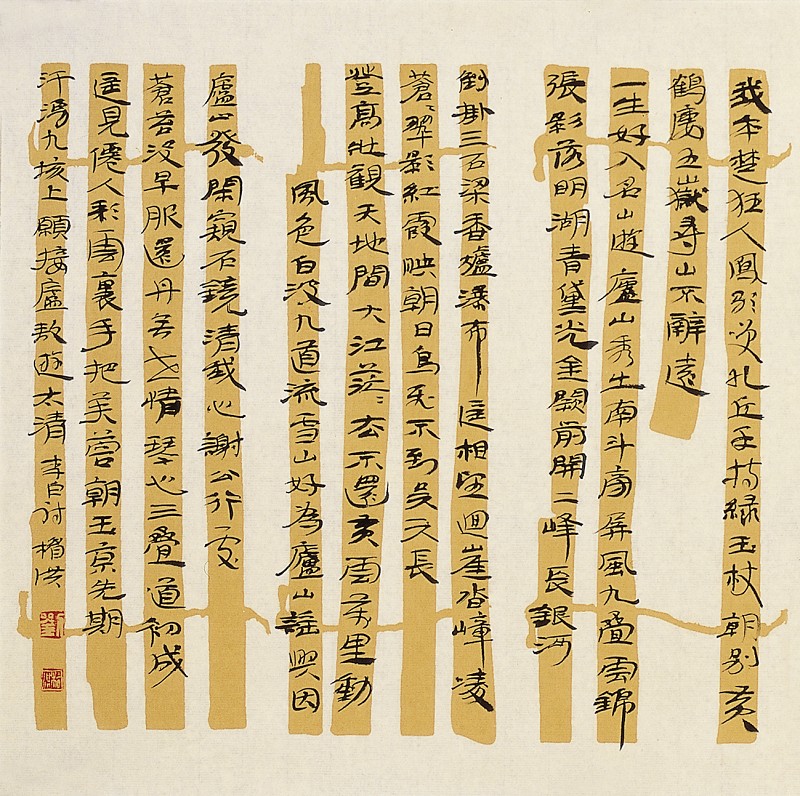 我本楚狂人鳳歌笑孔丘手持綠玉杖朝別黃
鶴樓五嶽尋山不辭遠
一生好入名山遊廬山秀出南斗旁屏風九疊雲錦
張影落明湖青黛光金闕前開二峰長銀河
倒掛三石梁香爐瀑布遙相望迴崖沓嶂凌
蒼〻翠影紅霞映朝日鳥飛不到吳天長
登高壯觀天地間大江茫〻去不還黃雲萬里動
風色白波九道流雪山好為廬山謠興因
廬山發閑窺石鏡清我心謝公行處
蒼苔沒早服還丹無世情琴心三疊道初成
遙見僊人彩雲裏手把芙蓉朝玉京先期
汗漫九垓上願接盧敖遊太清 李白詩